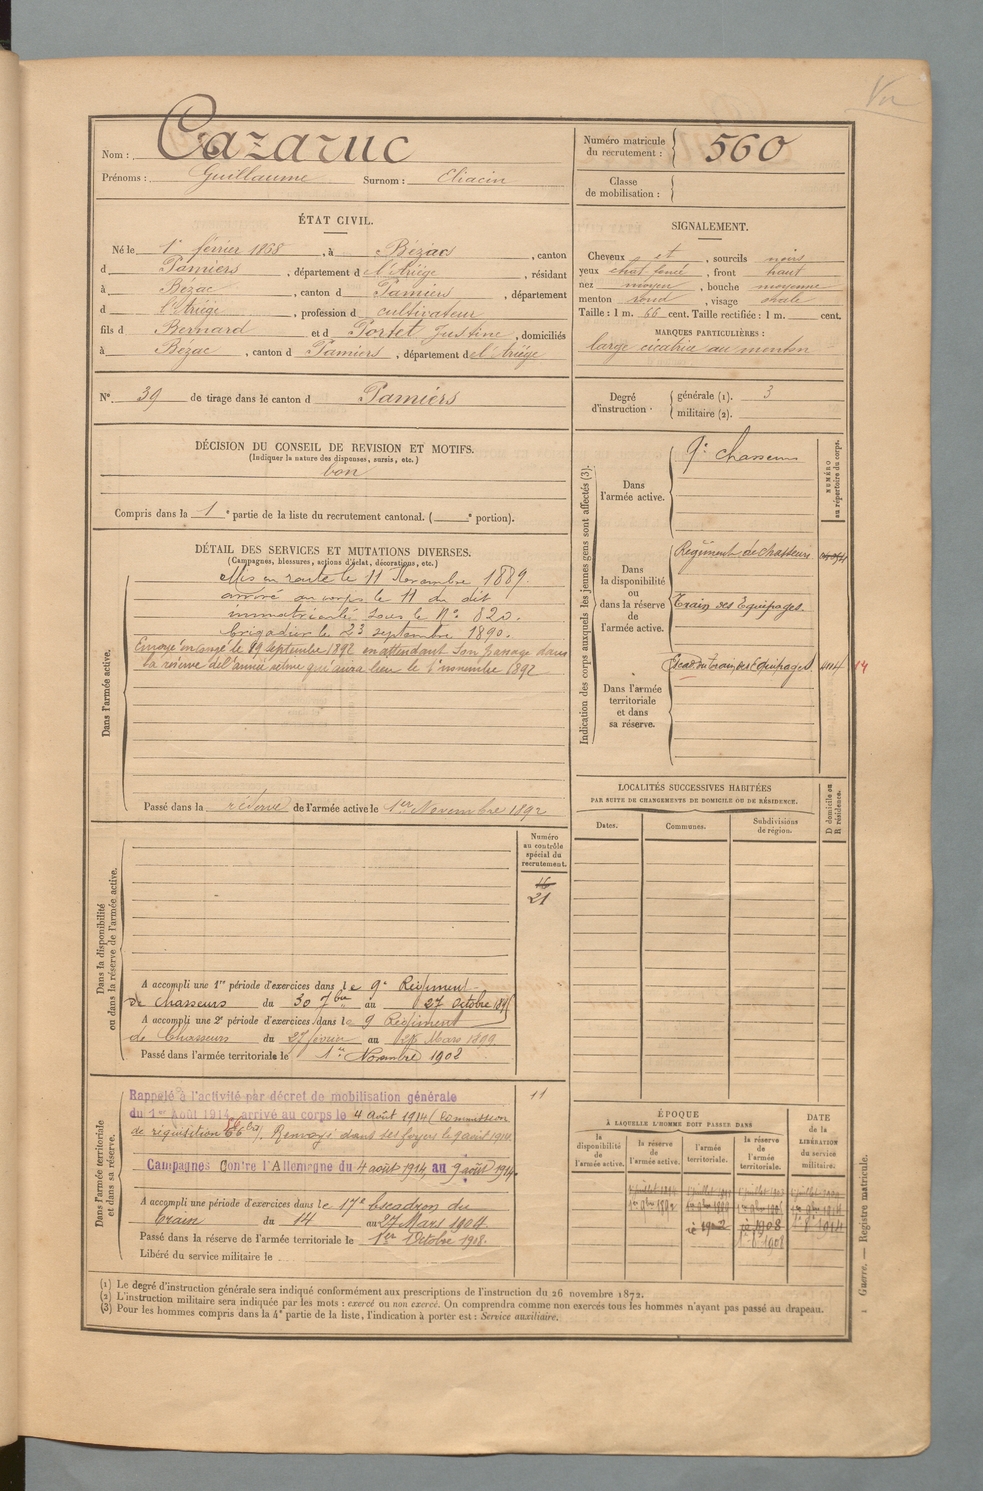 Vu
Nom : Cazaruc
Prénoms : Guillaume Surnom : Eliacin
Numéro matricule du recrutement : 560
Classe de mobilisation :
ÉTAT CIVIL.
Né le 1er février 1868, à Bézac, canton
d Pamiers, département d e l'Ariège, résidant
à Bézac, canton d Pamiers, département
d l'Ariège, profession d cultivateur
fils d Bernard et d Portet Justine, domiciliés
à Bézac, canton d Pamiers, département de l'Ariège
SIGNALEMENT.
Cheveux et, sourcils noirs
yeux chat foncé, front haut
nez moyen, bouche moyenne
menton rond, visage ovale
Taille : 1 m. 66 cent. Taille rectifiée : 1 m. cent.
MARQUES PARTICULIÈRES :
large cicatrice au menton
N° 39 de tirage dans le canton d Pamiers
Degré d'instruction
générale (1). 3
militaire (2).
DÉCISION DU CONSEIL DE REVISION ET MOTIFS.
(Indiquer la nature des dispenses, sursis, etc.)
bon
Compris dans la 1e partie de la liste du recrutement cantonal. ( e portion).
DÉTAIL DES SERVICES ET MUTATIONS DIVERSES.
(Campagnes, blessures, actions d'éclat, décorations, etc.)
Dans l'armée active.
Mis en route le 11 Novembre 1889.
arrivé au corps le 11 du dit
immatriculé sous le N° 820.
brigadier le 23 septembre 1890.
Envoyé en congé le 19 septembre 1892 en attendant son passage dans
la réserve de l'armée active qui aura lieu le 1er novembre 1892
Passé dans la réserve de l'armée active le 1er Novembre 1892
Indication des corps auxquels les jeunes gens sont affectés (3).
NUMÉRO au répertoire du corps.
Dans l'armée active.
9e chasseurs
Dans la disponibilité ou dans la réserve de l'armée active.
Régiment de chasseurs
Train des Equipages
Dans l'armée territoriale et dans sa réserve.
Escad du train des Equipages 14
LOCALITÉS SUCCESSIVES HABITÉES
PAR SUITE DE CHANGEMENTS DE DOMICILE OU DE RÉSIDENCE.
Dates. Communes. Subdivisions de région. D domicile ou R résidence.
Dans la disponibilité ou dans la réserve de l'armée active.
Numéro au contrôle spécial du recrutement.
16
21
A accompli une 1re période d'exercices dans le 9e Régiment
de chasseurs du 30 7bre au 27 Octobre
A accompli une 2e période d'exercices dans le 9 Régiment
de Chasseurs du 27 février au Mars 1899
Passé dans l'armée territoriale le 1er Novembre 1902
Dans l'armée territoriale et dans sa réserve.
Rappelé à l'activité par décret de mobilisation générale
du 1er Août 1914, arrivé au corps le 4 août 1914 (Commission
de réquisition). Renvoyé dans ses foyers le 9 août 1914.
Campagnes Contre l'Allemagne du 4 août 1914, au 9 août 1914.
11
A accompli une période d'exercices dans le 17e Escadron du
train du 14 au 27 Mars 1904
Passé dans la réserve de l'armée territoriale le 1er Octobre 1908.
Libéré du service militaire le
ÉPOQUE
À LAQUELLE L'HOMME DOIT PASSER DANS
la disponibilité de l'armée active. la réserve de l'armée active. l'armée territoriale. la réserve de l'armée territoriale.
DATE de la LIBÉRATION du service militaire.
(1) Le degré d'instruction générale sera indiqué conformément aux prescriptions de l'instruction du 26 novembre 1872.
(2) L'instruction militaire sera indiquée par les mots : exercé ou non exercé. On comprendra comme non exercés tous les hommes n'ayant pas passé au drapeau.
(3) Pour les hommes compris dans la 4e partie de la liste, l'indication à porter est : Service auxiliaire.
1 Guerre. — Registre matricule.